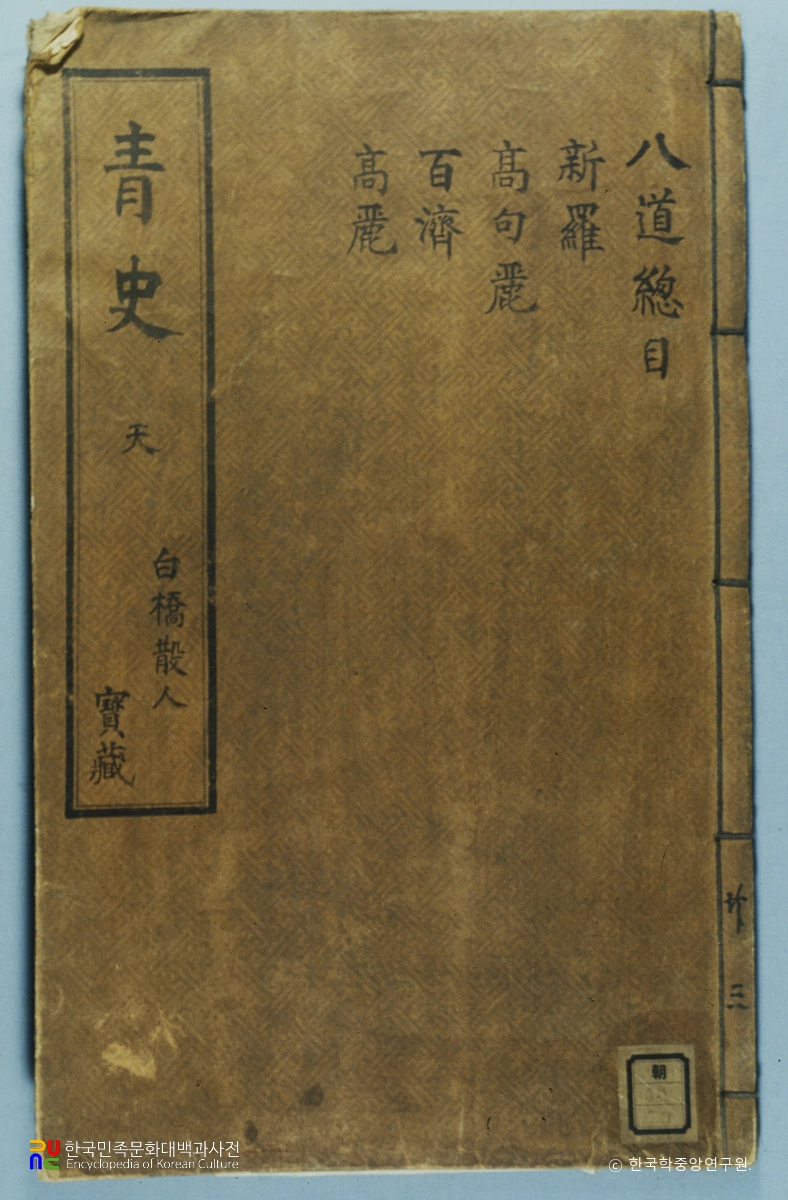 八道総目
新羅
高句麗
百濟
高麗
青史
天
白橋散人
寳藏
三
朝
한국민족문화대백과사전
Encyclopedia of Korean Culture
© 한국학중앙연구원.